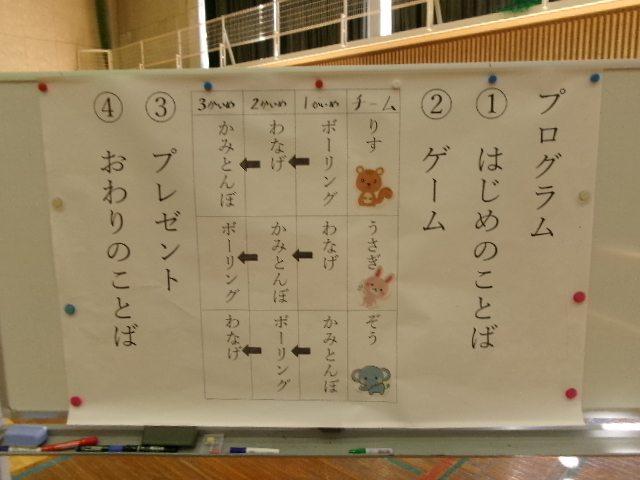 プログラム
① はじめのことば
② ゲーム
チーム
りす
うさぎ
ぞう
1かいめ
ボーリング
わなげ
かみとんぼ
2かいめ
わなげ
かみとんぼ
ボーリング
3かいめ
かみとんぼ
ボーリング
わなげ
③ プレゼント
④ おわりのことば